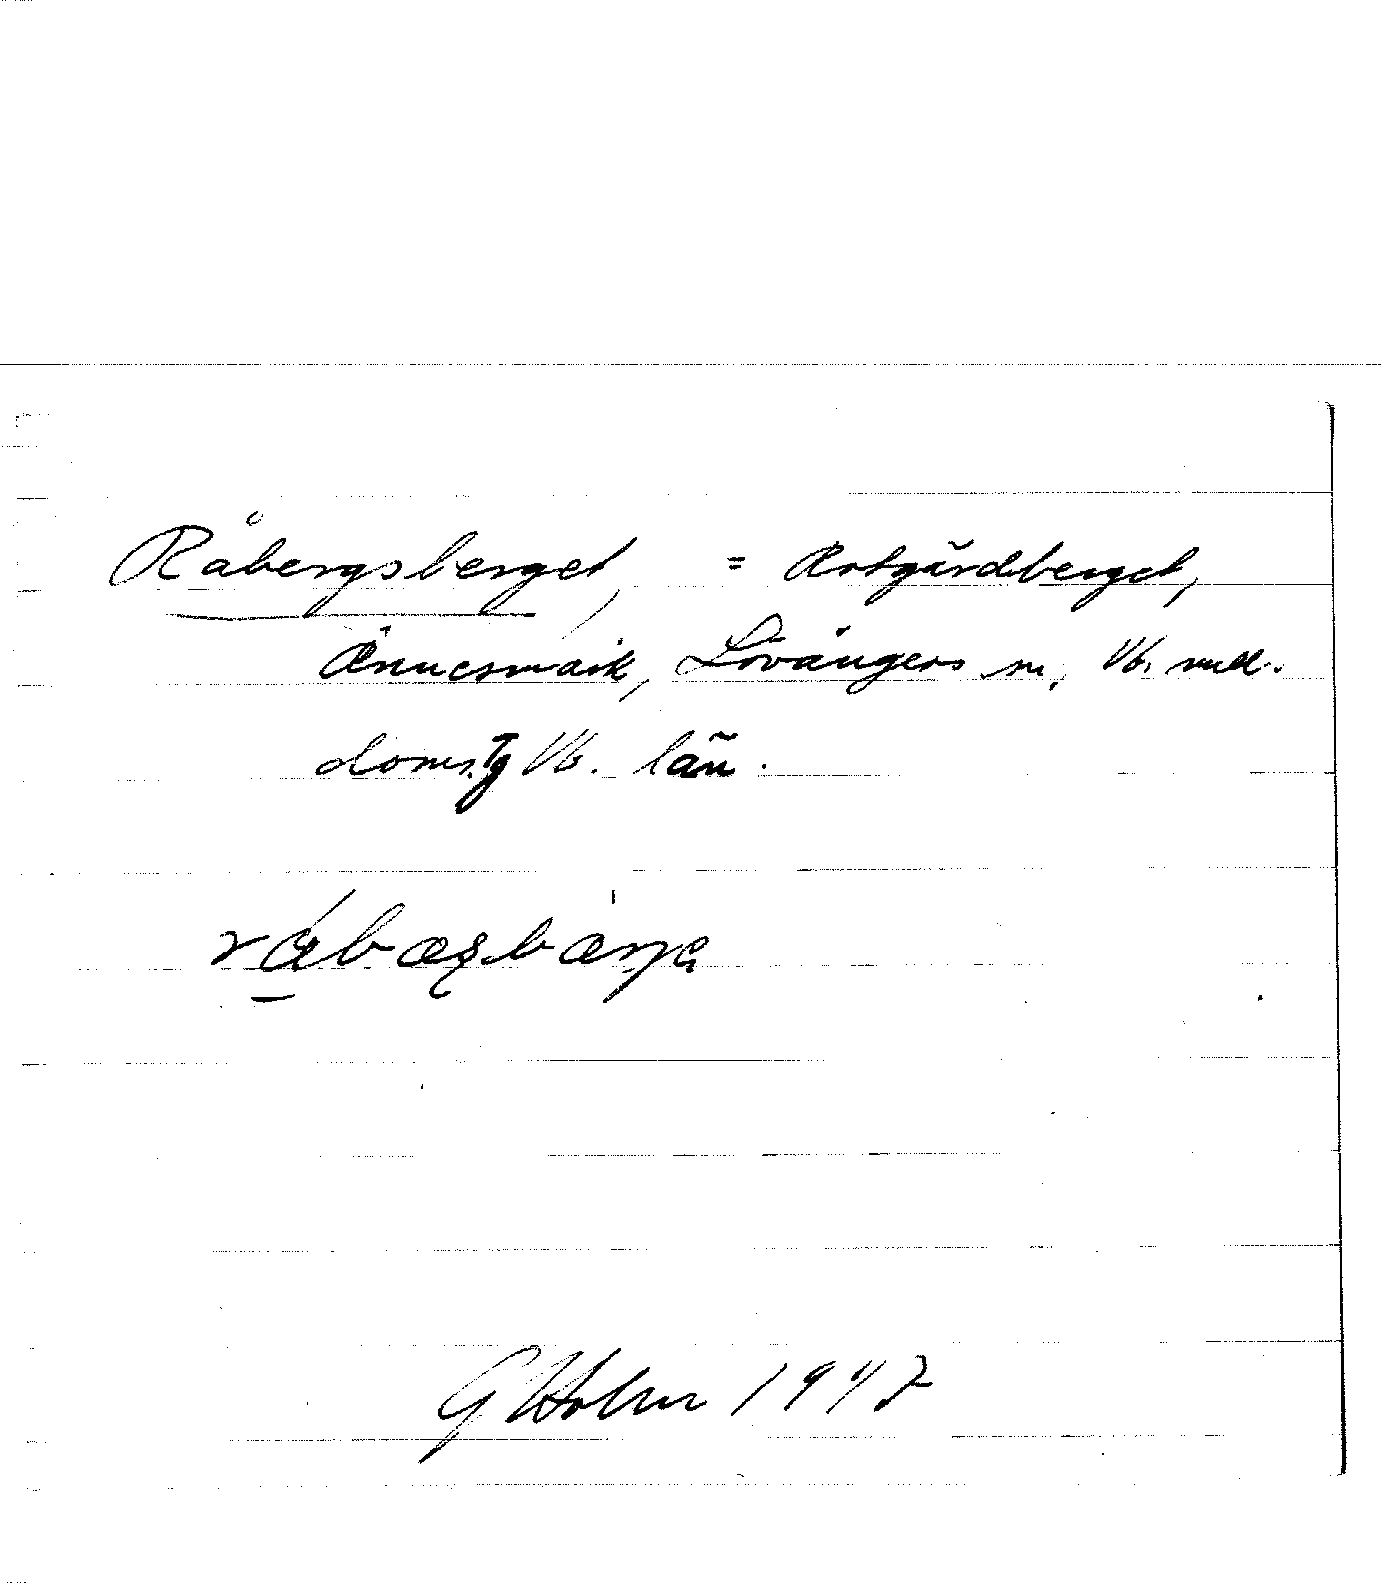 Råbergsberget, = Rotgärdberget,
Ånnesmark, Lövångers sn, Vb. mell.
doms. Vb. län.
G Holm 1947